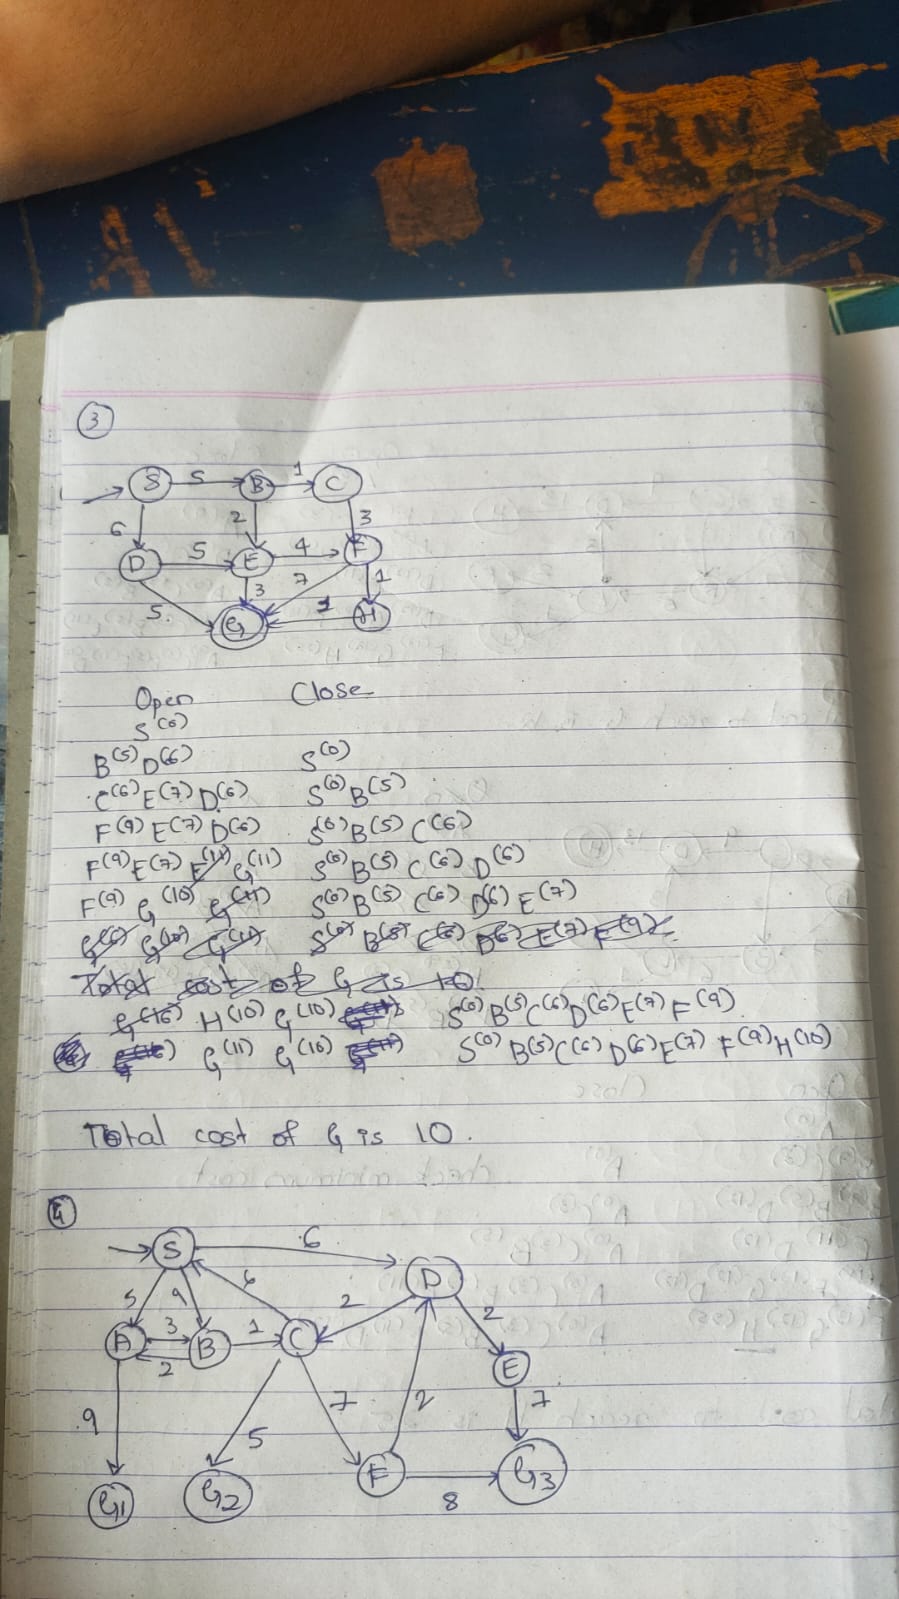 3
S 5 B 1 C
6 2 3
D 5 E 4 F
5. 3 7 1
G 1 H
Open Close
S(0)
B(5) D(6) S(0)
C(6) E(7) D(6) S(0) B(5)
F(9) E(7) D(6) S(0) B(5) C(6)
F(9) E(7) E(11) G(11) S(0) B(5) C(6) D(6)
F(9) G(10) G(11) S(0) B(5) C(6) D(6) E(7)
S(0) B(5) C(6) D(6) E(7) F(9)
Total cost of G is 10
G(16) H(10) G(10) S(0) B(5) C(6) D(6) E(7) F(9)
G(11) G(10) S(0) B(5) C(6) D(6) E(7) F(9) H(10)
Total cost of G is 10.
4
S 6 D
5 9 6 2 2
A 3 B 1 C E
2
9 5 7 2 7
G1 G2 F 8 G3